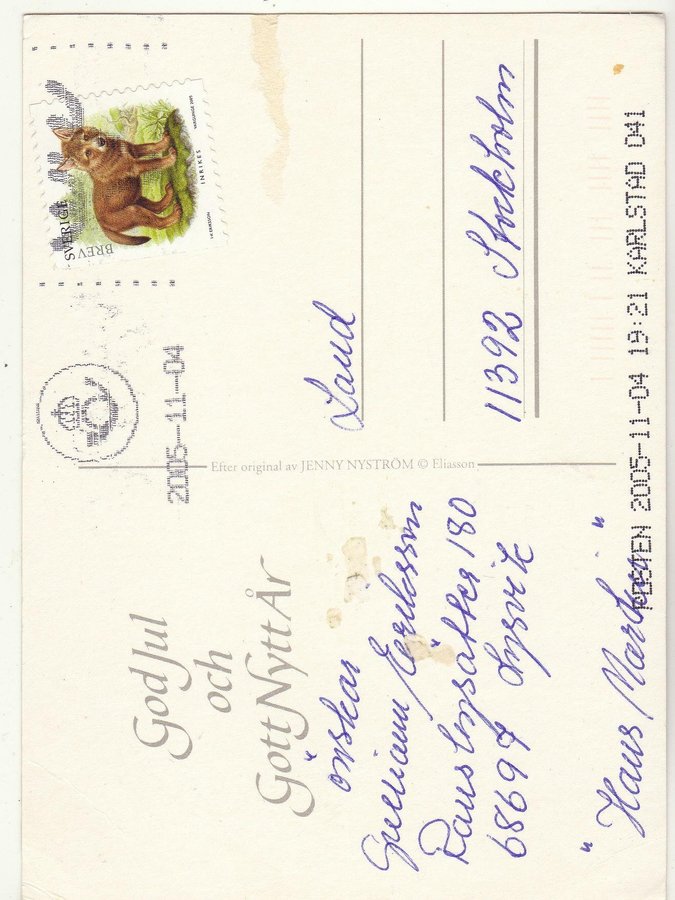 God Jul
och
Gott Nytt År
önskar
Gunnann Eriksson
Ransbysätter 180
68697 Lysvik
" Hans Martin "
Efter original av JENNY NYSTRÖM © Eliasson
2005-11-04
SVERIGE
BREV
INRIKES
Land
11392 Stockholm
POSTEN 2005-11-04 19:21 KARLSTAD 041